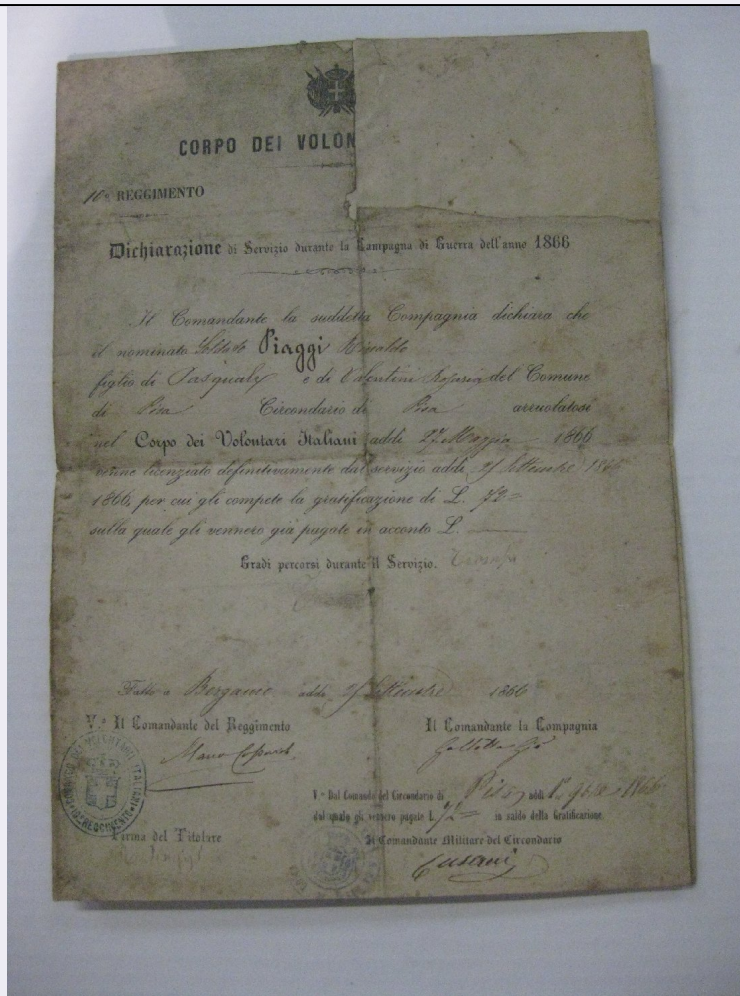 CORPO DEI VOLON
10° REGGIMENTO
Dichiarazione di Servizio durante la Campagna di Guerra dell'anno 1866
Il Comandante la suddetta Compagnia dichiara che
il nominato Soldato Piaggi
figlio di Pasquale e di del Comune
di Pisa Circondario di Pisa arruolatosi
nel Corpo dei Volontari Italiani addi 27 Maggio 1866
venne licenziato definitivamente dal servizio addi Settembre 1866
1866, per cui gli compete la gratificazione di L. 72=
sulla quale gli vennero già pagate in acconto L.
Gradi percorsi durante il Servizio.
Fatto a Bergamo addi Settembre 1866
V.° Il Comandante del Reggimento Il Comandante la Compagnia
V.° Dal Comando del Circondario di Pisa, addi 1866
dal quale gli vennero pagate L. 72= in saldo della Gratificazione.
Firma del Titolare Il Comandante Militare del Circondario